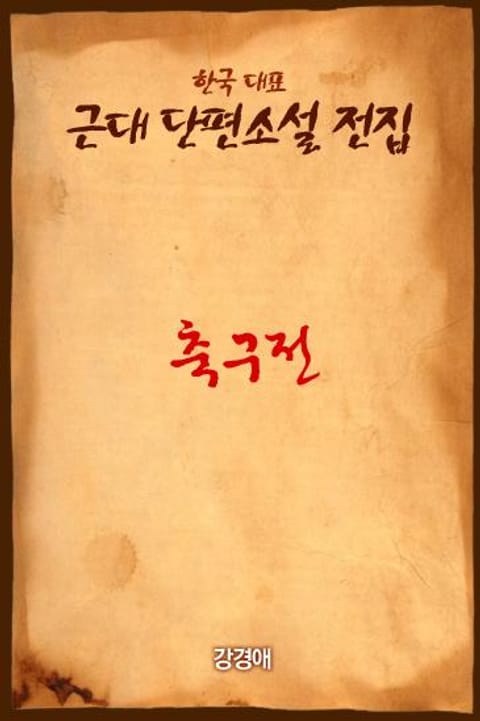 한국 대표
근대 단편소설 전집
축구전
강경애